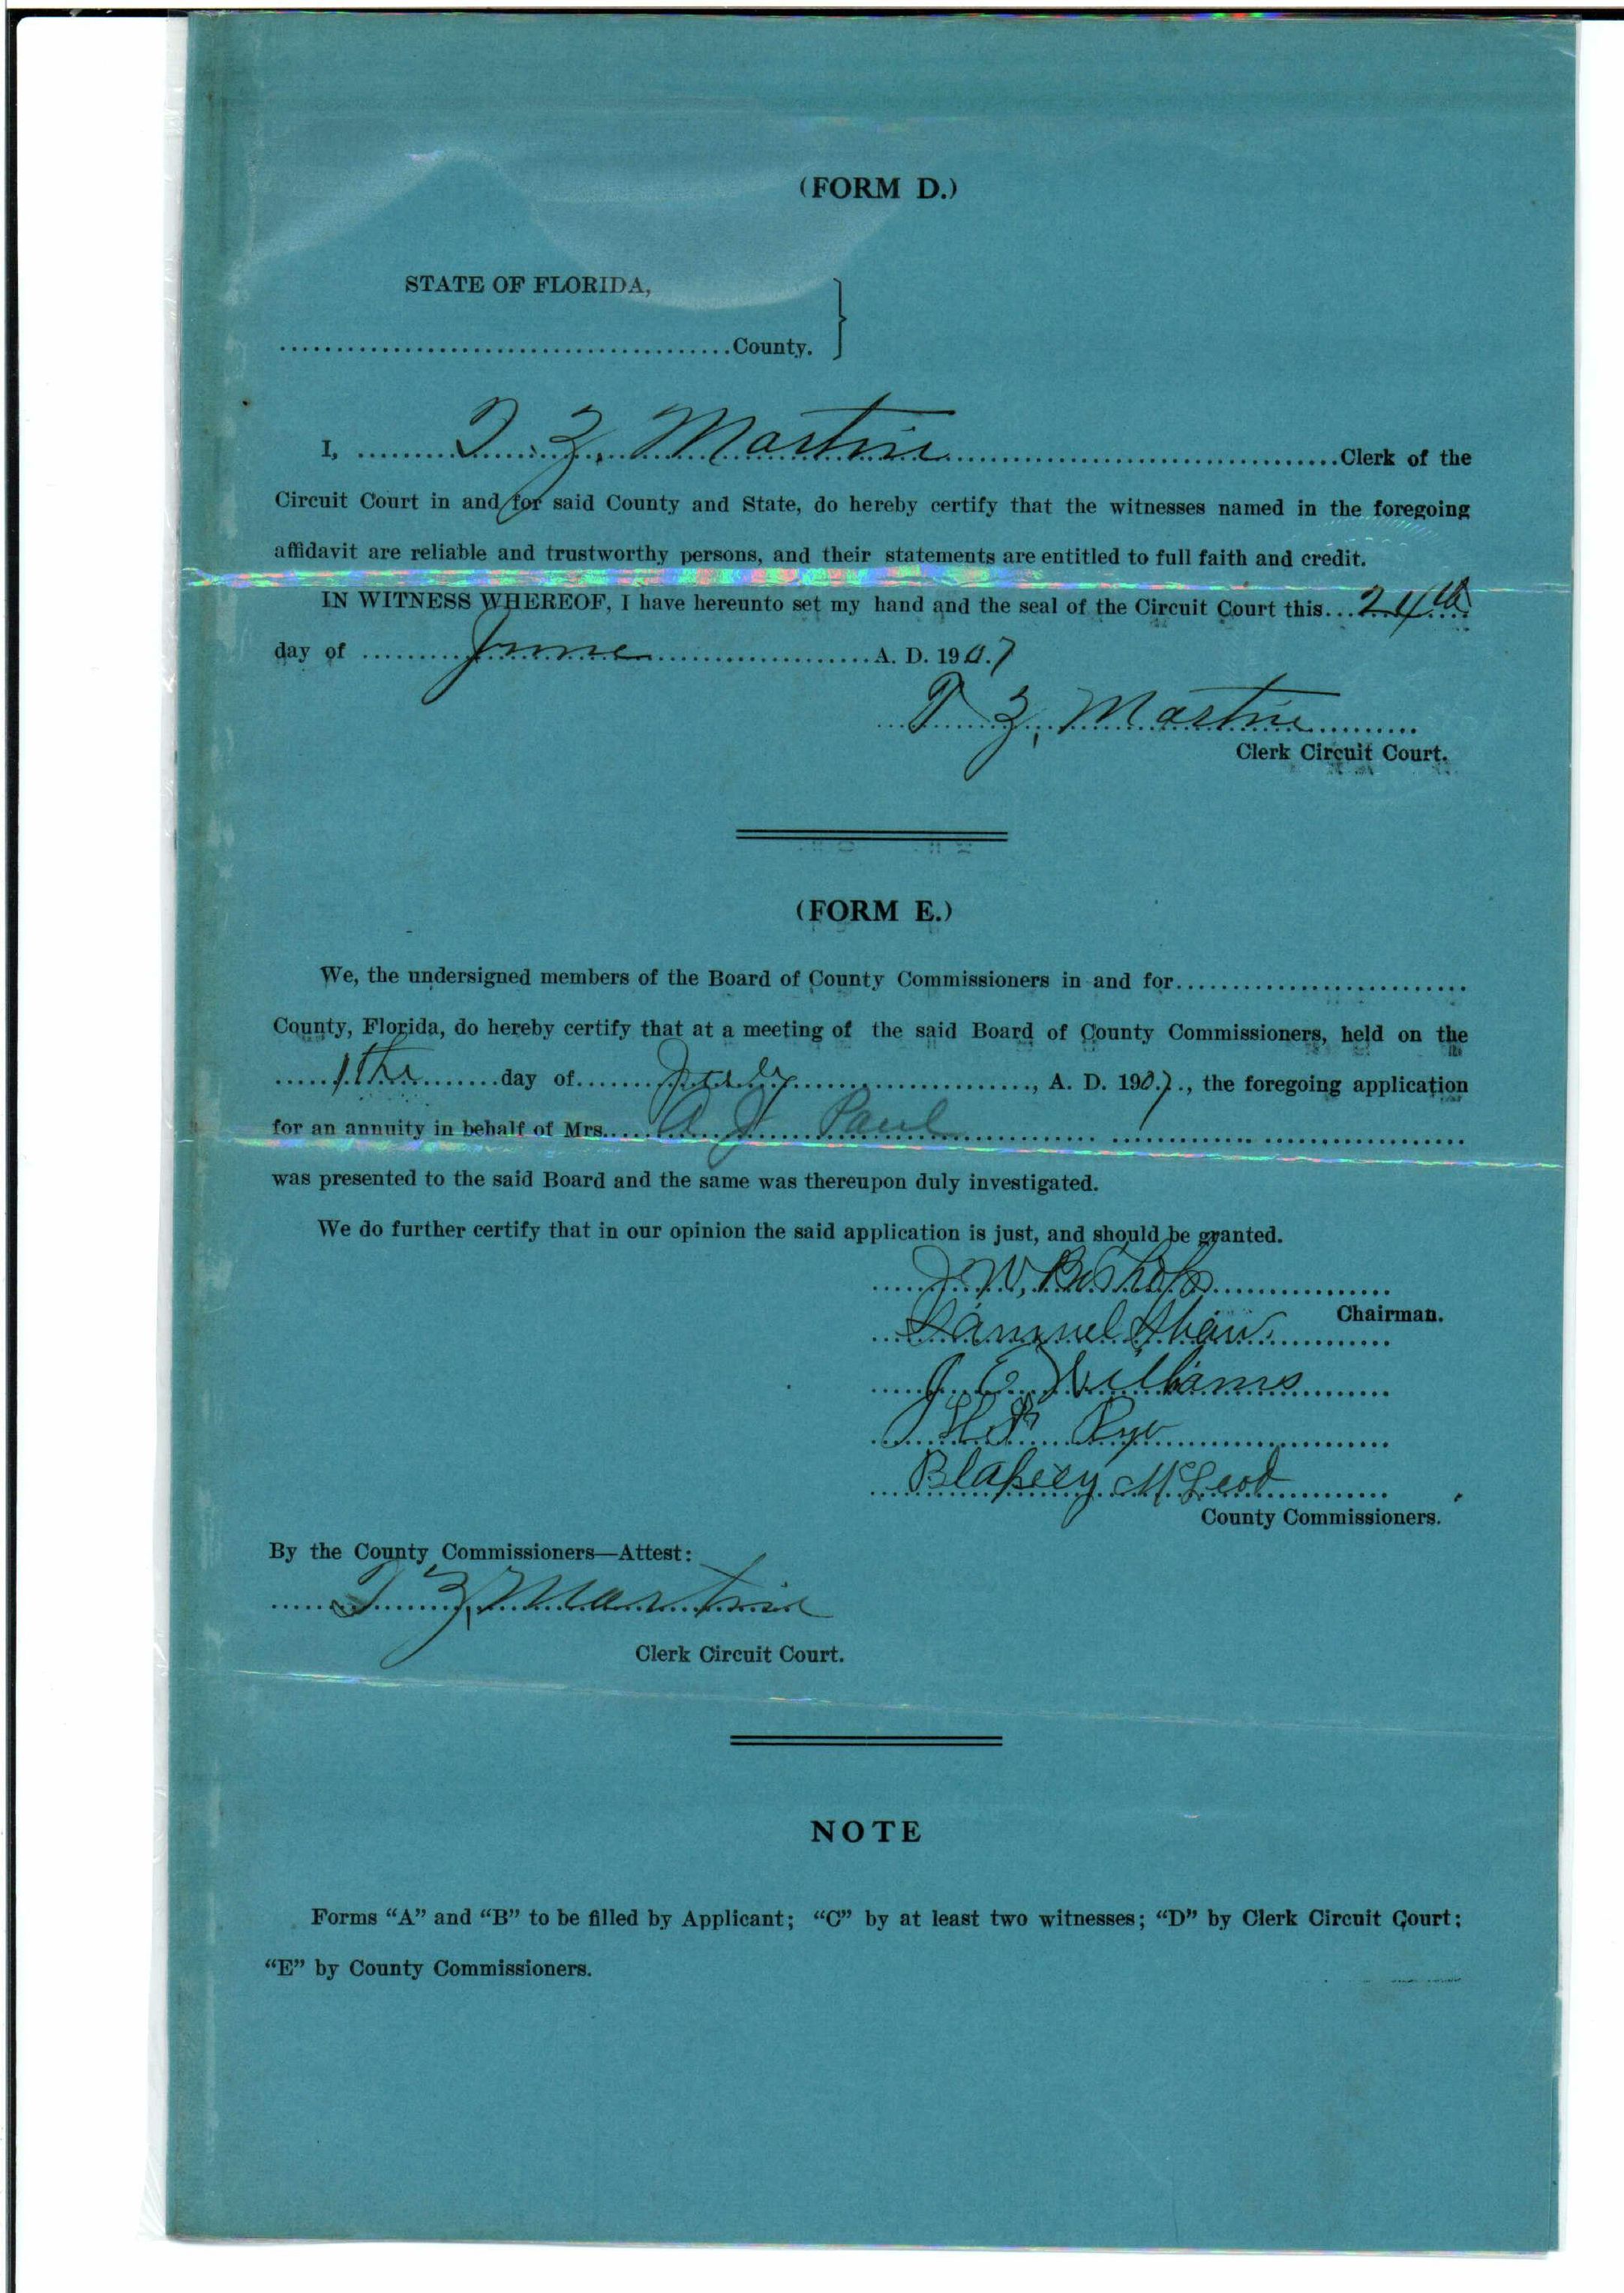 (FORM D.)
STATE OF FLORIDA,
........................................County.
I, ........T. Z. Martin........Clerk of the
Circuit Court in and for said County and State, do hereby certify that the witnesses named in the foregoing
affidavit are reliable and trustworthy persons, and their statements are entitled to full faith and credit.
IN WITNESS WHEREOF, I have hereunto set my hand and the seal of the Circuit Court this...24th
day of ........June........A. D. 1907
T. Z. Martin
Clerk Circuit Court.
(FORM E.)
We, the undersigned members of the Board of County Commissioners in and for........................
County, Florida, do hereby certify that at a meeting of the said Board of County Commissioners, held on the
.....1th.......day of.......July........, A. D. 1907., the foregoing application
for an annuity in behalf of Mrs....A J Paul........
was presented to the said Board and the same was thereupon duly investigated.
We do further certify that in our opinion the said application is just, and should be granted.
J. W. Bishop
Chairman.
Samuel Shaw
J E Williams
Rye
Blakeey McLeod
County Commissioners.
By the County Commissioners—Attest:
T Z Martin
Clerk Circuit Court.
NOTE
Forms “A” and “B” to be filled by Applicant; “C” by at least two witnesses; “D” by Clerk Circuit Court;
“E” by County Commissioners.